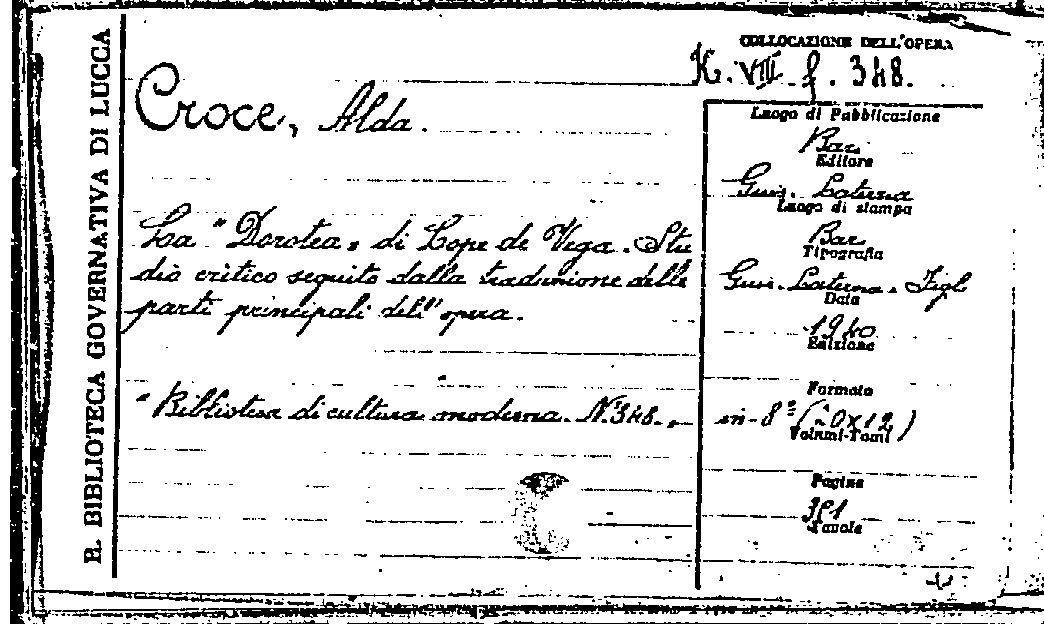 R. BIBLIOTECA GOVERNATIVA DI LUCCA
COLLOCAZIONE DELL'OPERA
K. VIII. f. 348.
Croce, Alda.
La "Dorotea" di Lope de Vega. Stu
dio critico seguito dalla traduzione delle
parti principali dell'opera.
"Biblioteca di cultura moderna. N. 348."
Luogo di Pubblicazione
Bar.
Editore
Gius. Laterza
Luogo di stampa
Bar.
Tipografia
Gius. Laterza. Figli
Data
1940
Edizione
Formato
in-8º (20x12)
Volumi-Tomi
Pagine
351
Tavole